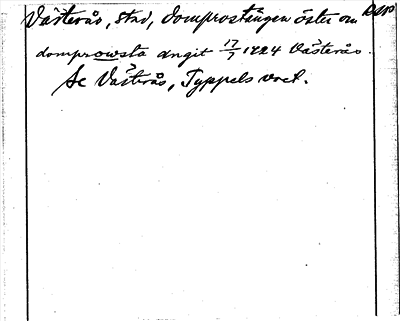 Västerås, stad, domprostängen öster om
domprowsta angit 17/7 1424 Västerås.
Se Västerås, Typpels vret.